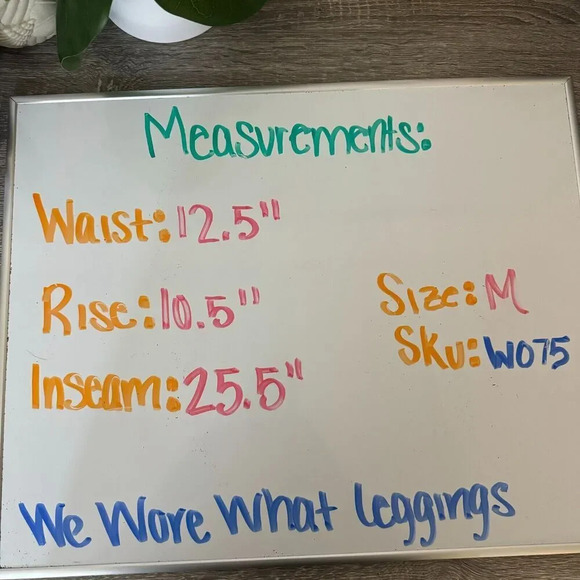 Measurements:
Waist: 12.5"
Rise: 10.5"
Inseam: 25.5"
Size: M
Sku: W075
We Wore What Leggings